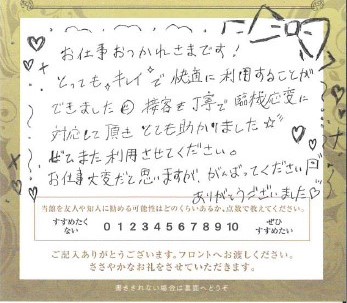 お仕事おつかれさまです!
とっても。キレイ。で快適に利用することが
できました 接客も丁寧で臨機応変に
対応して頂き とても助かりました☆
ぜひまた利用させてください。
お仕事大変だと思いますが、がんばってください
ありがとうございました
当館を友人や知人に勧める可能性はどのくらいあるか、点数で教えてください。
すすめたく
ない
0 1 2 3 4 5 6 7 8 9 10
ぜひ
すすめたい
ご記入ありがとうございます。フロントへお渡しください。
ささやかなお礼をさせていただきます。
書ききれない場合は裏面へどうぞ